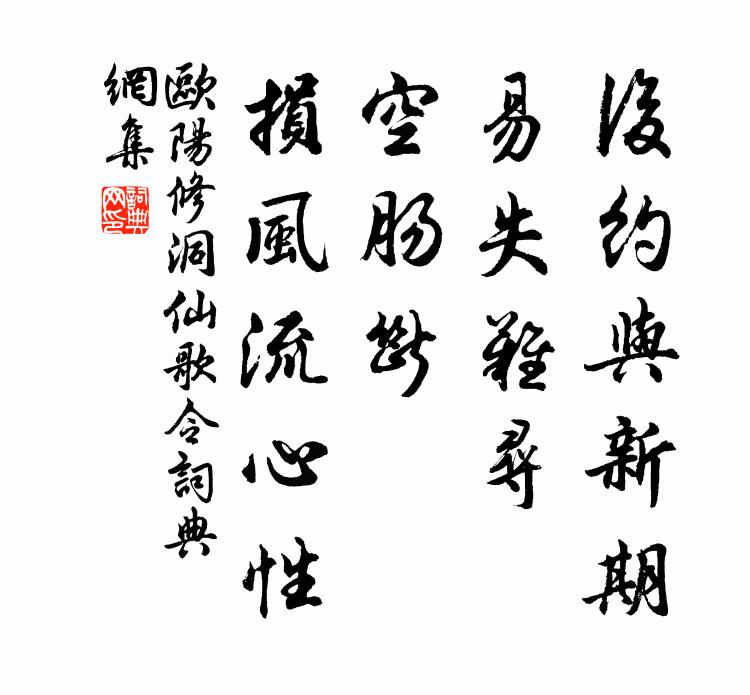 後約與新期
易失難尋
空腸斷
損風流心性
歐陽修洞仙歌令詞典
網集
詞典網印